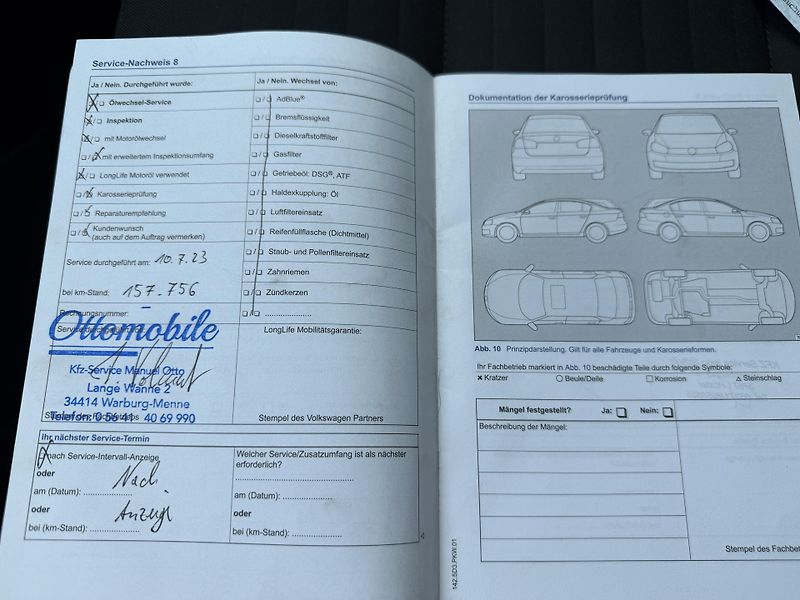 Service-Nachweis 8
Ja / Nein. Durchgeführt wurde:
Ölwechsel-Service
Inspektion
mit Motorölwechsel
mit erweitertem Inspektionsumfang
LongLife Motoröl verwendet
Karosserieprüfung
Reparaturempfehlung
Kundenwunsch
(auch auf dem Auftrag vermerken)
Service durchgeführt am: 10.7.23
bei km-Stand: 157.756
Rechnungsnummer:
Ottomobile
Kfz-Service Manuel Otto
Lange Wanne 2
34414 Warburg-Menne
Telefon: 0 56 41 40 69 990
Ja / Nein. Wechsel von:
AdBlue®
Bremsflüssigkeit
Dieselkraftstofffilter
Gasfilter
Getriebeöl: DSG®, ATF
Haldexkupplung: Öl
Luftfiltereinsatz
Reifenfüllflasche (Dichtmittel)
Staub- und Pollenfiltereinsatz
Zahnriemen
Zündkerzen
LongLife Mobilitätsgarantie:
Stempel des Volkswagen Partners
Ihr nächster Service-Termin
nach Service-Intervall-Anzeige
oder
Nach
am (Datum):
oder
Anzeige
bei (km-Stand):
Welcher Service/Zusatzumfang ist als nächster
erforderlich?
am (Datum):
oder
bei (km-Stand):
Dokumentation der Karosserieprüfung
Abb. 10 Prinzipdarstellung. Gilt für alle Fahrzeuge und Karosserieformen.
Ihr Fachbetrieb markiert in Abb. 10 beschädigte Teile durch folgende Symbole:
× Kratzer ○ Beule/Delle □ Korrosion △ Steinschlag
Mängel festgestellt? Ja: Nein:
Beschreibung der Mängel:
Stempel des Fachbet
142.5D3.PKW.01